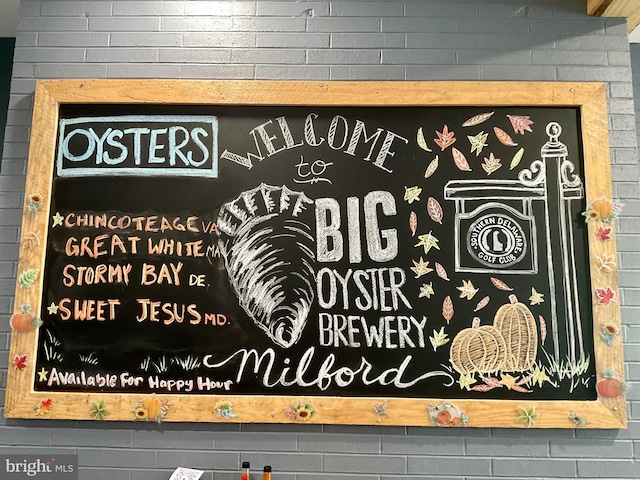 OYSTERS
CHINCOTEAGE VA
GREAT WHITE MA
STORMY BAY DE.
SWEET JESUS MD.
Available For Happy Hour
WELCOME
to
BIG
OYSTER
BREWERY
Milford
SOUTHERN DELAWARE
L
GOLF CLUB
bright MLS